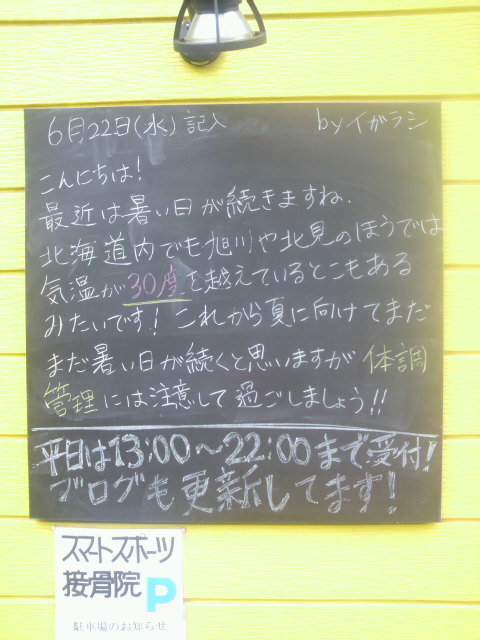 6月22日(水)記入 byイガラシ
こんにちは!
最近は暑い日が続きますね.
北海道内でも旭川や北見のほうでは
気温が30度を越えているとこもある
みたいです! これから夏に向けてまだ
まだ暑い日が続くと思いますが 体調
管理には注意して過ごしましょう!!
平日は13:00〜22:00まで受付!
ブログも更新してます!
スマートスポーツ
接骨院 P
駐車場のお知らせ